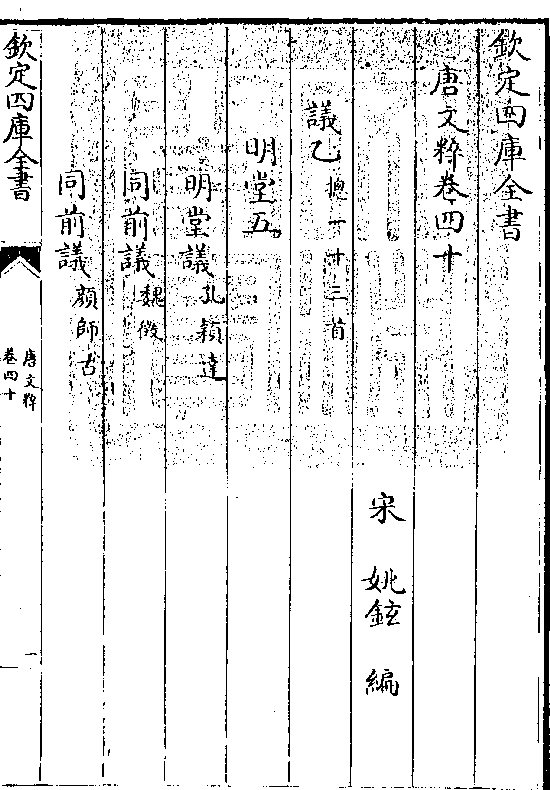 欽定四庫全書
唐文粹卷四十
宋 姚鉉 編
議乙 摠一十三首
明堂五
明堂議 孔穎達
同前議 魏徵
同前議 顔師古
欽定四庫全書
唐文粹
卷四十
一